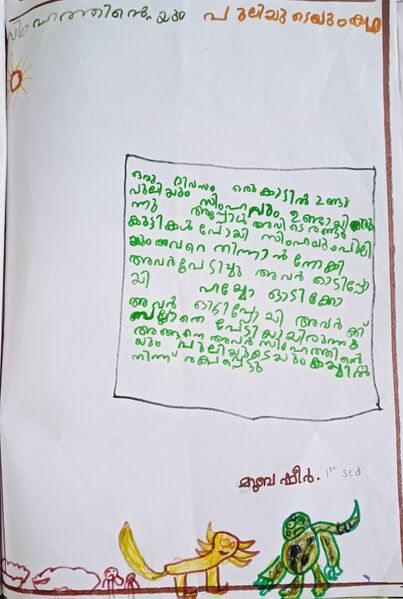 സിംഹത്തിന്റെയും പുലിയുടെയും കഥ
ഒരു ദിവസം ഒരു കാട്ടിൽ ഉണ്ടു
പുലിയും സിംഹവും ഉണ്ടായിരു
ന്നു അപ്പോൾ അവിടെ രണ്ടു
കുട്ടികൾ പോയി സിംഹയും പുലി
ക്കും അവരെ നിന്നാൻ നോക്കി
അവർ പേടിച്ചു അവർ ഓടിപ്പോ
യി ഹയ്യോ ഓടിക്കോ
അവർ ഓടിപ്പോയി അവർക്ക്
വല്ലാതെ പേടിയായിരുന്നു
അങ്ങനെ അവർ സിംഹത്തിന്റെ
യും പുലിയുടെയും കയ്യിൽ
നിന്ന് രക്ഷപ്പെട്ടു
മുബഷീർ. 1st std